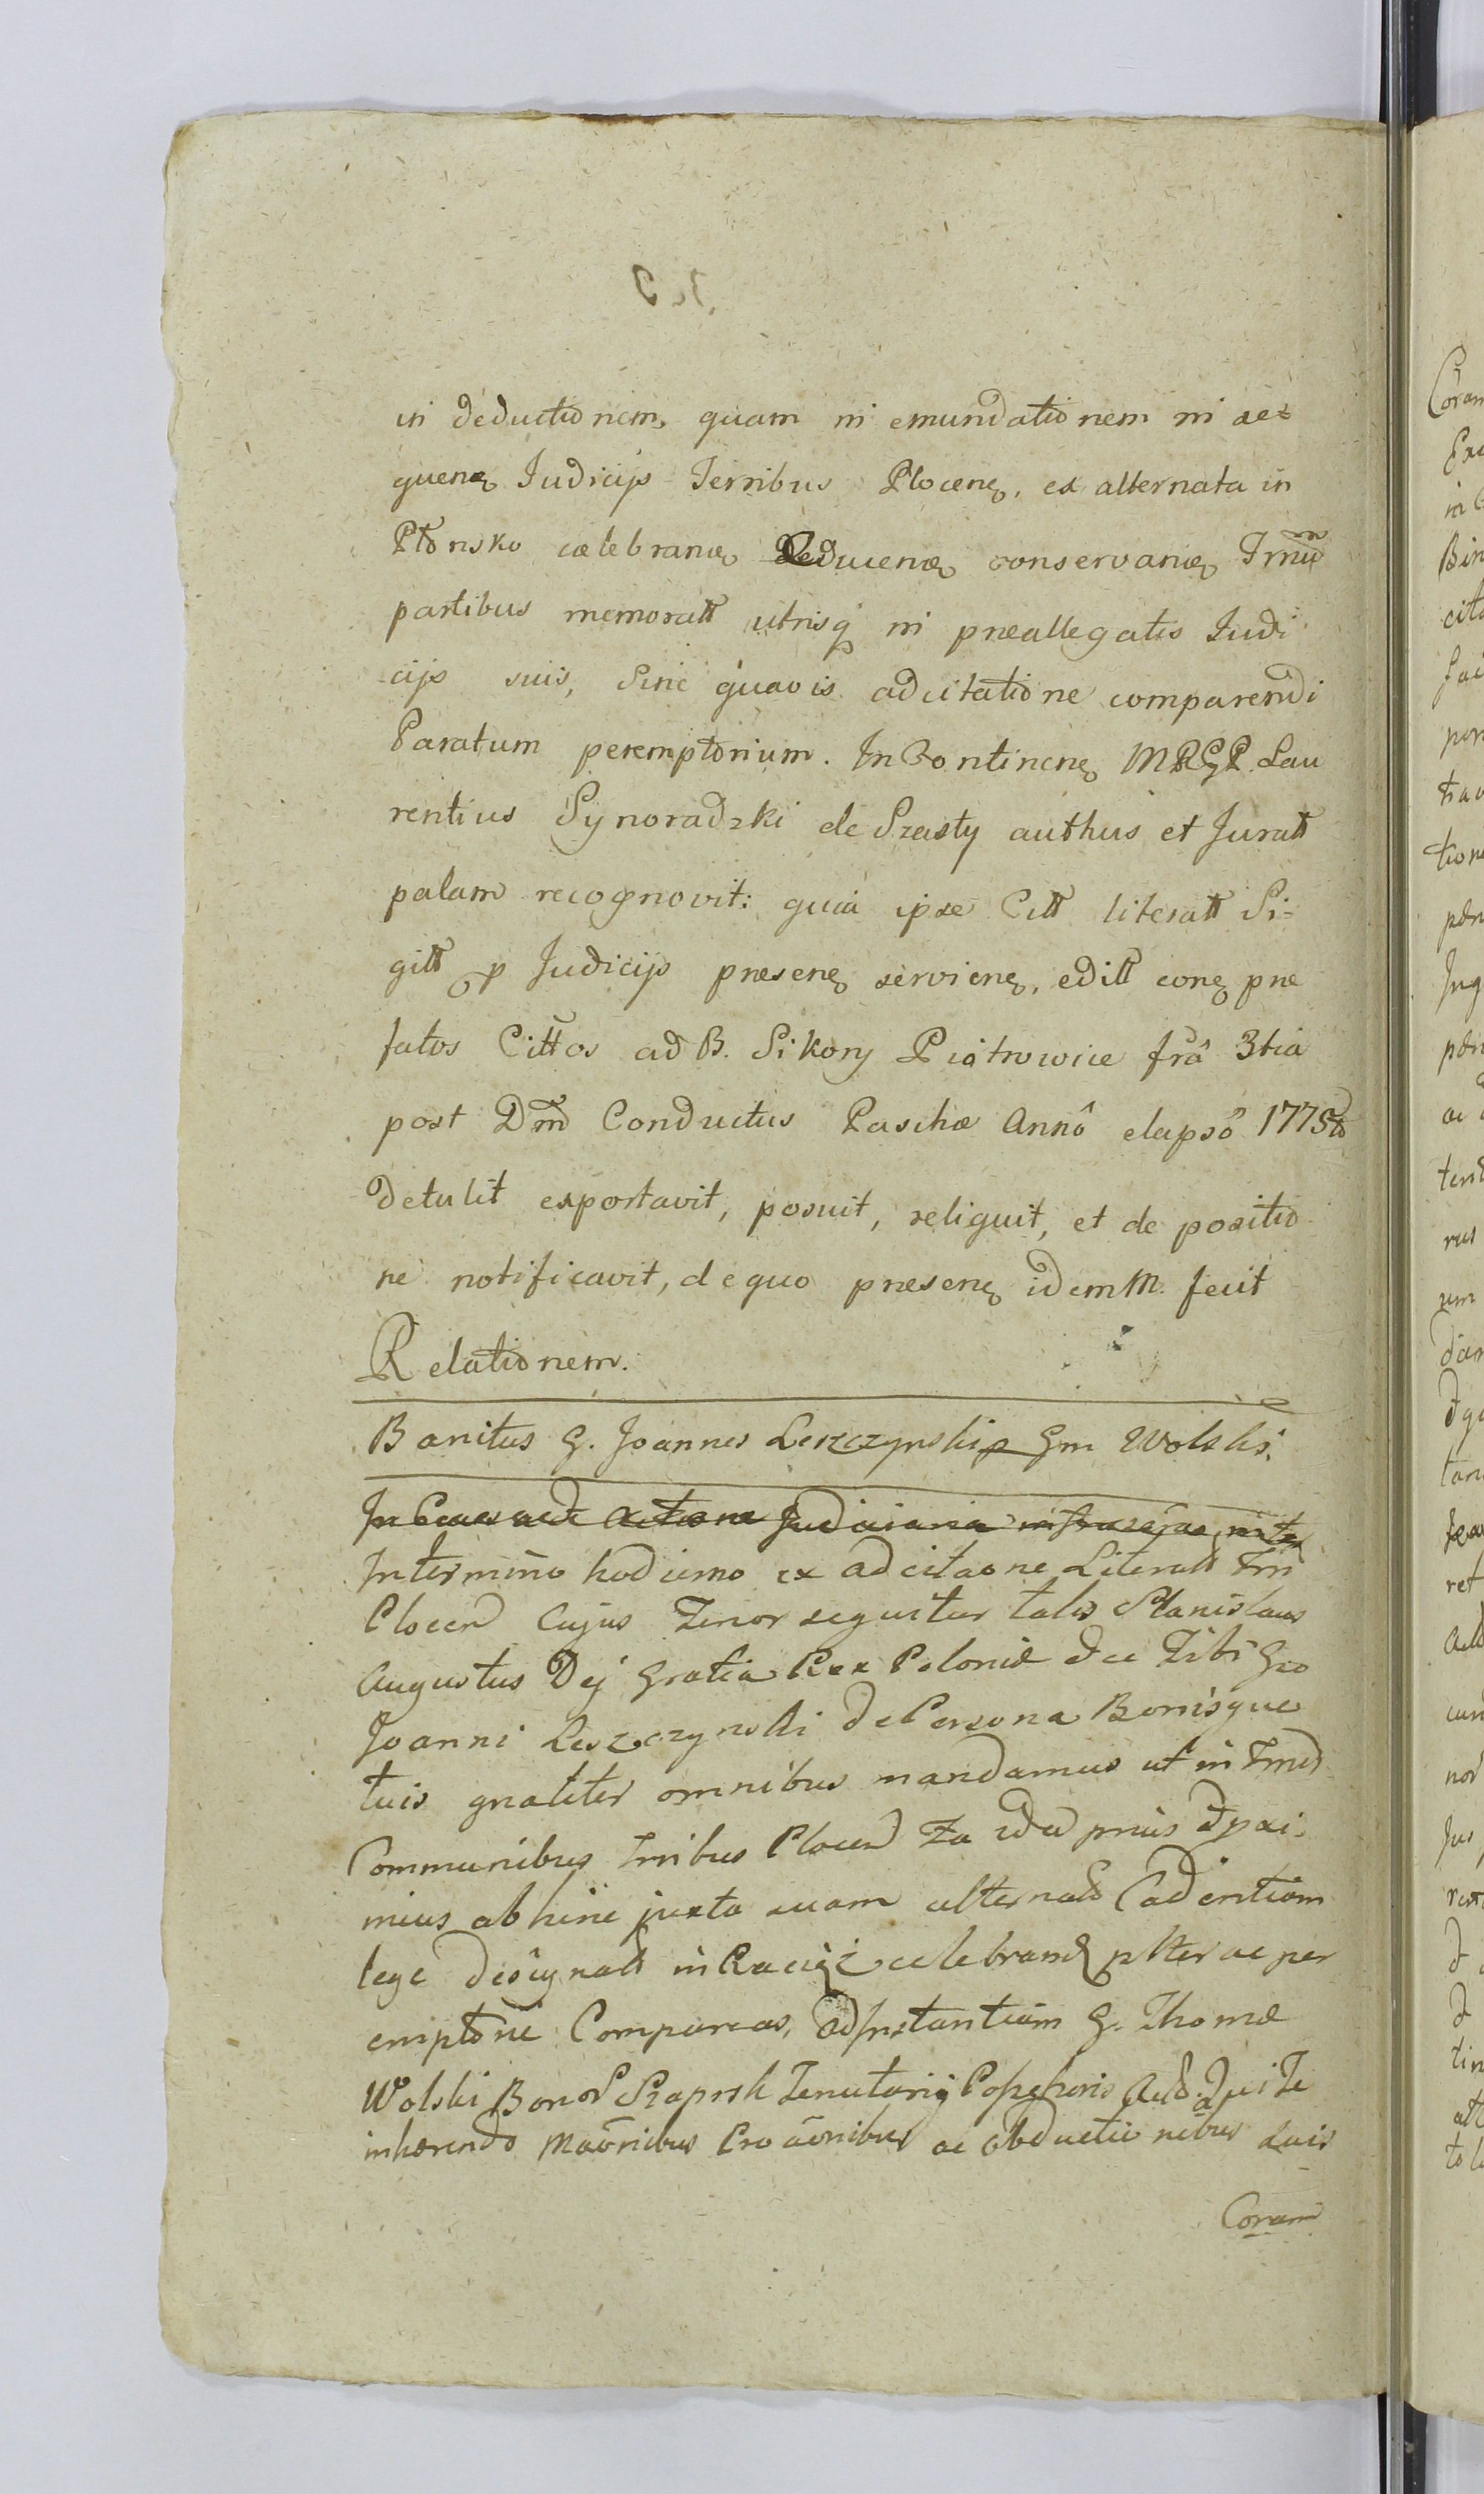 in deductionem, quam in emundationem in se=
quenꝫ Judicijs Terribus Plocenꝫ, ex alternata in
Płonsko celebranꝫ deducenꝫ conservanꝫ Trmũ
partibus memoratt utrisq in præallegatis Judi
cijs suis, Sine quavis adcitatione comparendi
Paratum peremptorium. In Continenꝫ MRGP. Lau
rentius Synoradzki de Szasty authus et Juratt
palam recognovit: quia ipse Citt literatt Si=
gitt p Judicijs præsenꝫ servienꝫ, editt conꝫ præ
fatos Cittos ad B. Sikory Piotrowice frâ 3tia
post Dmd Conductus Paschæ Annô elapsô 1775to
detulit exportavit, posuit, reliquit, et de positio
ne notificavit, de quo præsenꝫ idem M. fecit
Relationem.
Banitus G. Joannes Leszczynski p Gm Wolski.
Judiciaria
In termino hodierno ex adcitaone Literatt Trri
Plocen Cujus Tenor sequitur talis Stanislaus
Augustus Dej Gratia Rex Poloniæ Tibi Gso
Joanni Leszczynski de Persona Bonisque
tuis gnaliter omnibus mandamus ut in
Communibus Trribus Plocen prius
mius abhinc juxta suam alternatt Cadentiam
lege designatt in Raciąż celebrand ptter ac per
emptorie Compareas, ad Instantiam G. Thomæ
Wolski Bonor Tenutarij Possessoris Qui Te
inhærendo Maõnibus Proaõnibus ac obductionibus suis
Coram